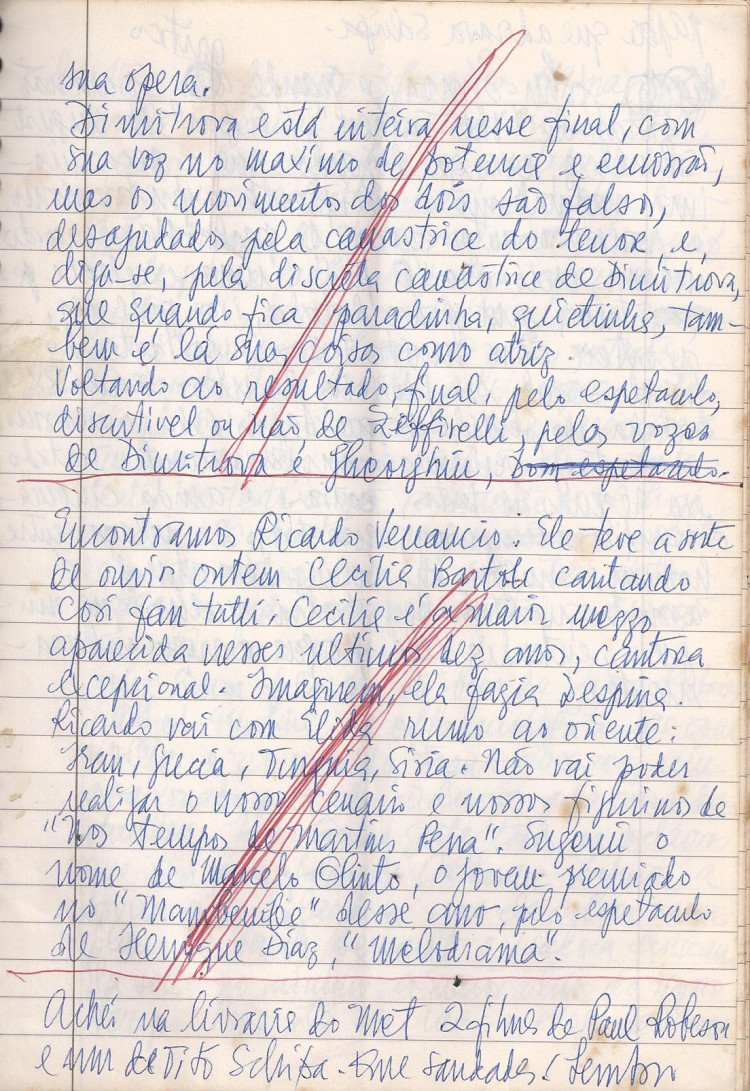 sua opera.
Dimitrova está inteira nesse final, com
sua voz no maximo de potencia e emossão,
mas os movimentos dos dois são falsos,
desajudados pela canastrice do tenor, e,
diga-se, pela discreta canastrice de Dimitrova,
que quando fica paradinha, quietinha, tam-
bem é lá suas coisas como atriz.
Voltando ao resultado final, pelo espetaculo,
discutivel ou não de Zeffirelli, pelas vozes
de Dimitrova e Gheorghiu, bom espetaculo.
Encontramos Ricardo Venancio. Ele teve a sorte
de ouvir ontem Cecilia Bartoli cantando
Cosi fan tutti. Cecilia é a maior mezzo
aparecida nesses ultimos dez anos, cantora
excepcional. Imaginem, ela fazia Despina.
Ricardo vai com Élida rumo ao oriente:
Iran, Grecia, Turquia, Siria. Não vai poder
realizar o nosso cenario e nossos figurinos de
"Nos tempos de Martins Pena". Sugeriu o
nome de Marcelo Olinto, o jovem premiado
no "Mambembe" desse ano, pelo espetaculo
de Henrique Diaz, "Melodrama".
Achei na livraria do Met 2 filmes de Paul Robeson
e um de Tito Schipa. Que saudades! Lembro